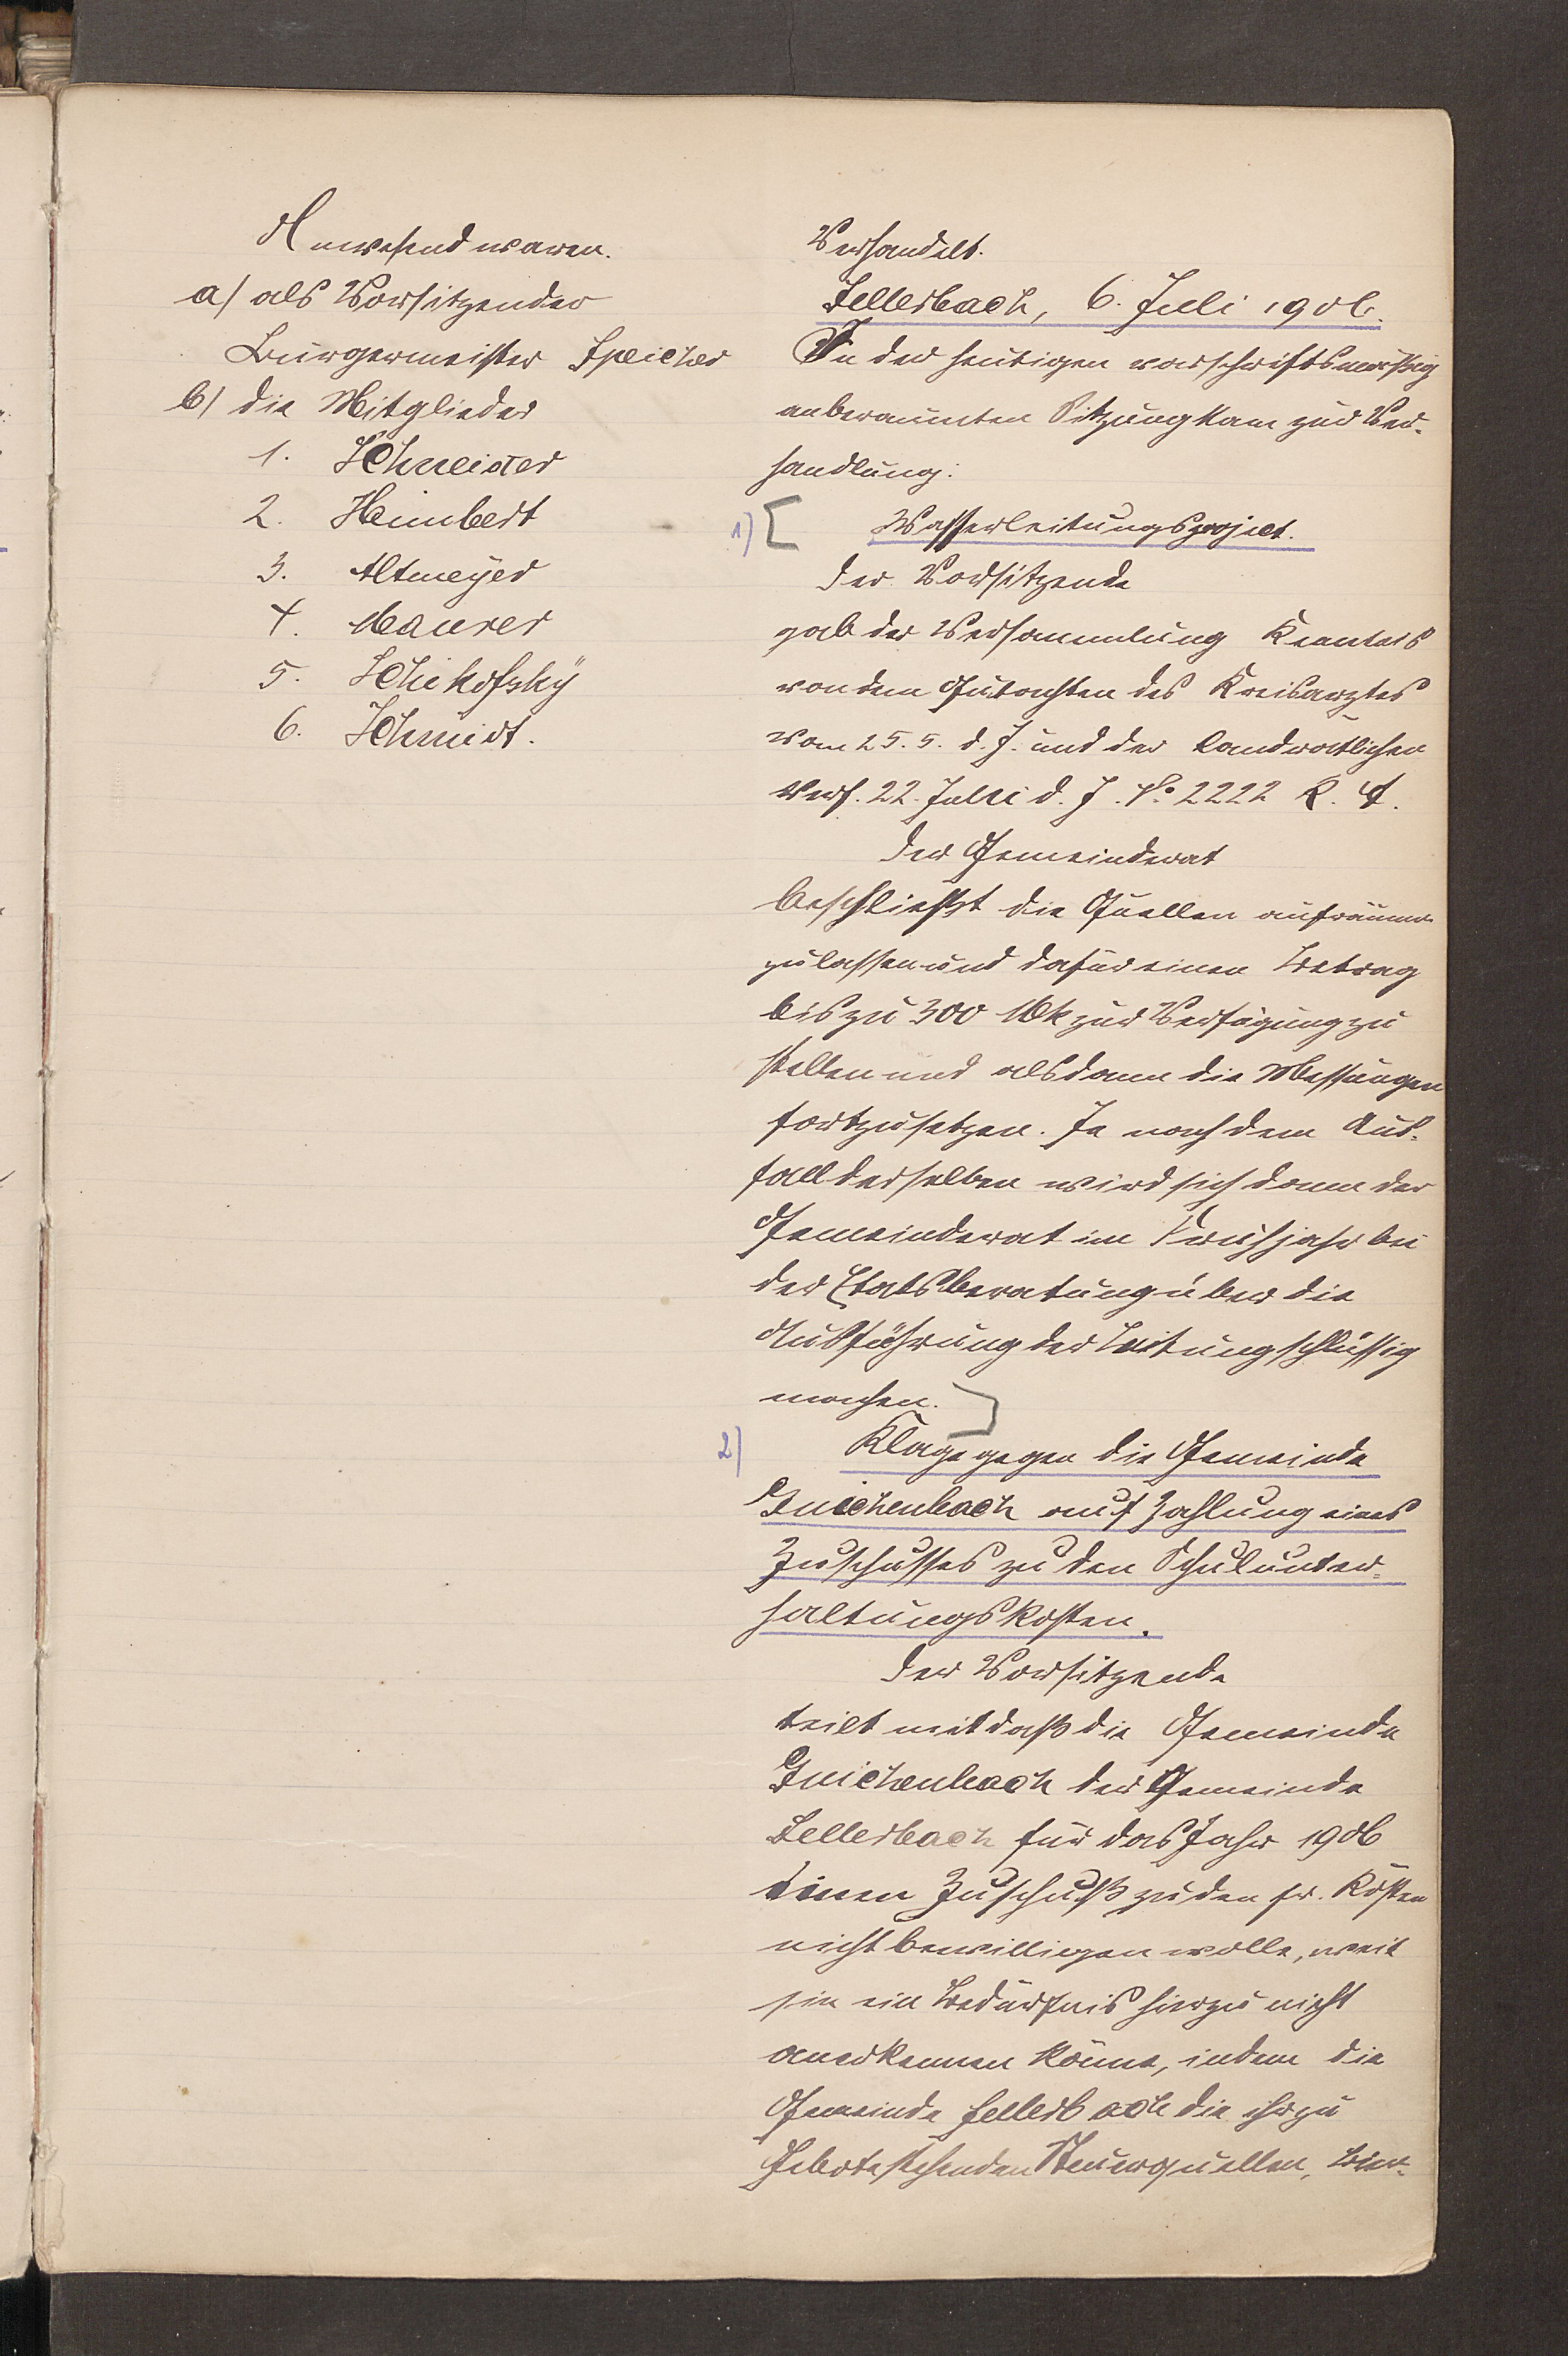 Anwesend waren.
a) als Vorsitzender
Bürgermeister Speicher
b) die Mitglieder
1. Schneider
2. Heimbert
3. Altmeÿer
4. Maurer
5. Schikofskÿ
6. Schmidt.
Verhandelt.
Sellerbach, 6. Juli 1906.
In der heutigen vorschriftsmäßig
anberaumten Sitzung kam zur Ver-
handlung:
1) [ Wasserleitungsproject.
Der Vorsitzende
gab der Versammlung Kenntnis
von dem Gutachten des Kreisarztes
vom 25.5. d. J. und der landrätlichen
Verf. 22. Juni d. J. No 2222 K. A.
Der Gemeinderat
beschließt die Quellen aufräumen
zu lassen und dafür einen Betrag
bis zu 300 Mk zur Verfügung zu
stellen und alsdann die Messungen
fortzusetzen. Je nach dem Aus-
fall derselben wird sich dann der
Gemeinderat im Frühjahr bei
der Etatsberatung über die
Ausführung der Leitung schlüssig
machen. ]
2) Klage gegen die Gemeinde
Guichenbach auf Zahlung eines
Zuschusses zu den Schulunter-
haltungskosten.
Der Vorsitzende
teilt mit daß die Gemeinde
Guichenbach der Gemeinde
Sellerbach für das Jahr 1906
einen Zuschuß zu den pr. Kosten
nicht bewilligen wolle, weil
sie ein Bedürfnis hierzu nicht
anerkennen könne, indem die
Gemeinde Sellerbach die ihr zu
Gebote stehenden Steuerquellen, Bier-